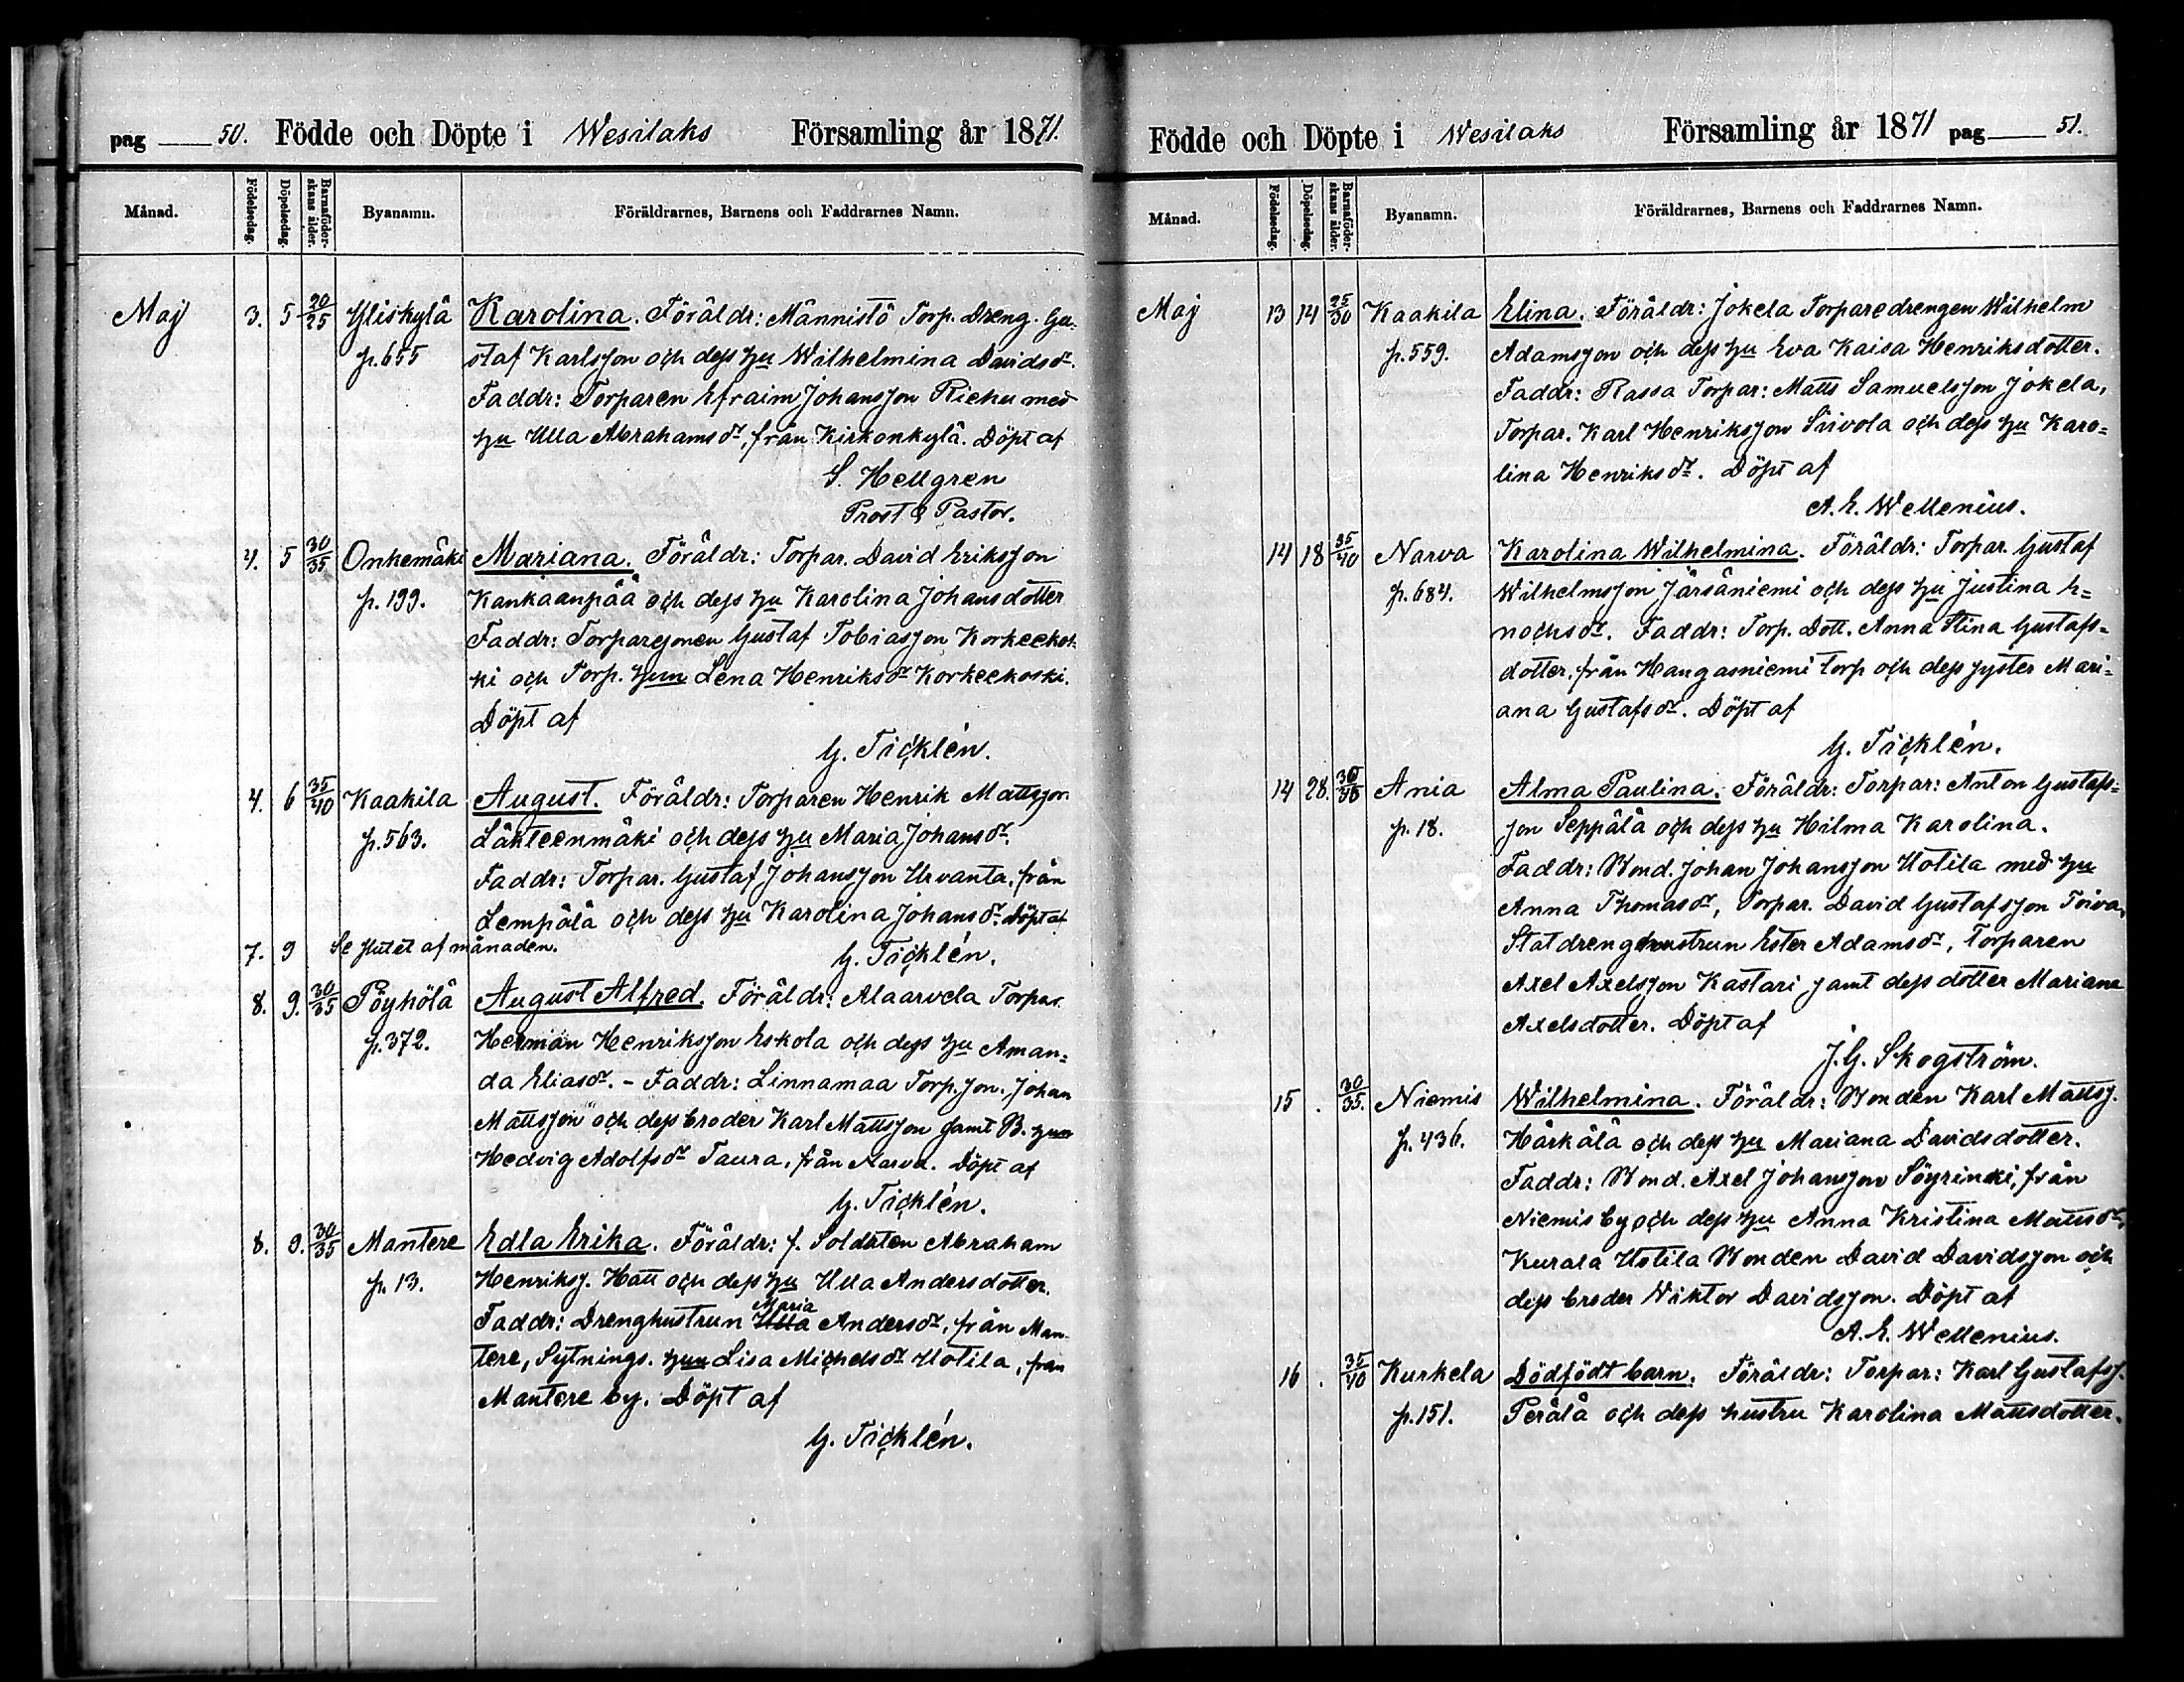 pag 50. Födde och Döpte i Wesilaks Församling år 1871.
Månad. Födelsedag. Döpelsedag. Barnaföderskans ålder. Byanamn. Föräldrarnes, Barnens och Faddrarnes Namn.
Maj 3. 5 20/25 Yliskylä Karolina. Föräldr: Männistö Torp. Dreng. Gu-
p. 655 staf Karlsson och dess hu Wilhelmina Davidsdr.
Faddr: Torparen Efraim Johansson Riehu med
hu Ulla Abrahamsdr, från Kirkonkylä. Döpt af
S. Hellgren
Prost & Pastor.
4. 5 30/35 Onkemäki Mariana. Föräldr: Torpar. David Eriksson
p. 199. Kankaanpää och dess hu Karolina Johansdotter
Faddr: Torparesonen Gustaf Tobiasson Korkeekos-
ki och Torp. hun Lena Henriksdr Korkeekoski.
Döpt af
G. Ticklén.
4. 6 35/40 Kaakila August. Föräldr: Torparen Henrik Mattsson
p. 563. Läkteenmäki och dess hu Maria Johansdr.
Faddr: Torpar. Gustaf Johansson Urvanta, från
Lempälä och dess hu Karolina Johansdr. Döpt af
7. 9 Se slutet af månaden. G. Ticklén.
8. 9. 30/35 Pöyhölä August Alfred. Föräldr: Alaarvela Torpar.
p. 372. Herman Henriksson Eskola och dess hu Aman-
da Eliasdr. - Faddr: Linnamaa Torp. son. Johan
Mattsson och dess broder Karl Mattsson samt B. hun
Hedvig Adolfsdr Taura, från Narva. Döpt af
G. Ticklén.
8. 9. 30/35 Mantere Edla Erika. Föräldr: f. Soldaten Abraham
p. 13. Henrikss. Hatt och dess hu Ulla Andersdotter.
Maria
Faddr: Drenghustrun Ulla Andersdr, från Man-
tere, Sytnings. hun Lisa Michelsdr Uotila, från
Mantere by. Döpt af
G. Ticklén.
Födde och Döpte i Wesilaks Församling år 1871 pag 51.
Månad. Födelsedag. Döpelsedag. Barnaföderskans ålder. Byanamn. Föräldrarnes, Barnens och Faddrarnes Namn.
Maj 13 14 25/30 Kaakila Elina. Föräldr: Jokela Torparedrengen Wilhelm
p. 559. Adamsson och dess hu Eva Kaisa Henriksdotter.
Faddr: Rassa Torpar: Matts Samuelsson Jokela,
Torpar. Karl Henriksson Siivola och dess hu Karo-
lina Henriksdr. Döpt af
A. E. Wellenius.
14 18 35/40 Narva Karolina Wilhelmina. Föräldr: Torpar. Gustaf
p. 684. Wilhelmsson Järsäniemi och dess hu Justina E-
nochsdr. Faddr: Torp. Dott. Anna Stina Gustafs-
dotter, från Hangasniemi torp och dess syster Mari-
ana Gustafsdr. Döpt af
G. Ticklén.
14 28. Ania Alma Paulina. Föräldr: Torpar: Anton Gustafs-
p. 18. son Seppälä och dess hu Hilma Karolina.
Faddr: Bond. Johan Johansson Uotila med hu
Anna Thomasdr, Torpar. David Gustafsson Toiva,
Statdrenghustrun Ester Adamsdr, Torparen
Axel Axelsson Kastari samt dess dotter Mariana
Axelsdotter. Döpt af
J. G. Skogström.
15 . 30/35. Niemis Wilhelmina. Föräldr: Bonden Karl Mattss.
p. 436. Härkälä och dess hu Mariana Davidsdotter.
Faddr: Bond. Axel Johansson Söyrinki, från
Niemis by och dess hu Anna Kristina Mattsdr,
Kurala Uotila Bonden David Davidsson och
dess broder Wiktor Davidsson. Döpt af
A. E. Wellenius.
16 . 35/40 Kurkela Dödfödt barn. Föräldr: Torpar: Karl Gustafss.
p. 151. Perälä och dess hustru Karolina Mattsdotter.